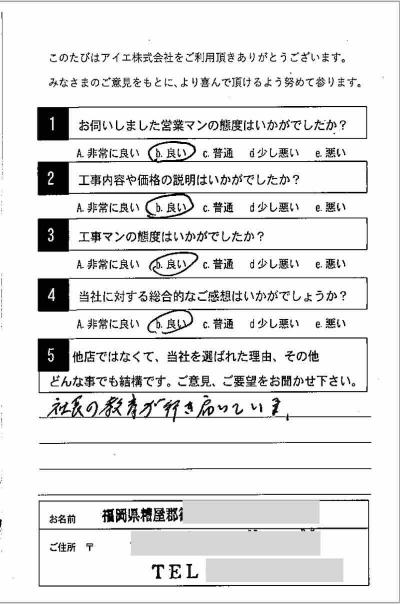 このたびはアイエ株式会社をご利用頂きありがとうございます。
みなさまのご意見をもとに、より喜んで頂けるよう努めて参ります。
1 お伺いしました営業マンの態度はいかがでしたか?
A. 非常に良い b. 良い c. 普通 d 少し悪い e. 悪い
2 工事内容や価格の説明はいかがでしたか?
A. 非常に良い b. 良い c. 普通 d 少し悪い e. 悪い
3 工事マンの態度はいかがでしたか?
A. 非常に良い b. 良い c. 普通 d 少し悪い e. 悪い
4 当社に対する総合的なご感想はいかがでしょうか?
A. 非常に良い b. 良い c. 普通 d 少し悪い e. 悪い
5 他店ではなくて、当社を選ばれた理由、その他
どんな事でも結構です。ご意見、ご要望をお聞かせ下さい。
社長の教育が行き届いています
お名前 福岡県糟屋郡
ご住所 〒
TEL